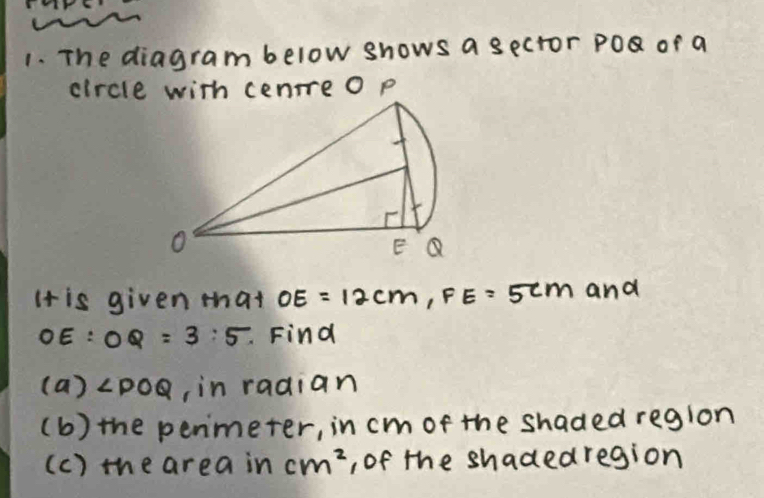 1. The diagram below shows a sector POQ of a
circle with centre O P
O
E Q
It is given that OE = 12cm, FE = 5cm and
OE : OQ = 3 : 5. Find
(a) ∠POQ, in radian
(b) the perimeter, in cm of the shaded region
(c) the area in cm², of the shaded region